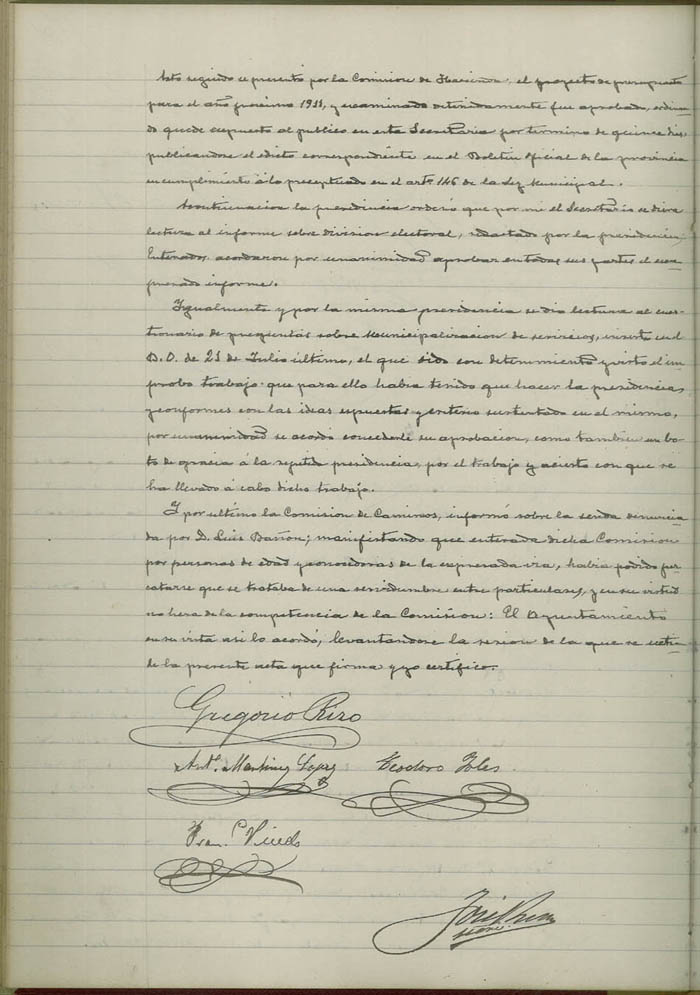 Acto seguido se presentó por la Comision de Hacienda, el proyecto de presupuesto
para el año proximo 1911, y examinado detenidamente fué aprobado, ordenan-
do quede expuesto al publico en esta Secretaria por termino de quince dias,
publicandose el edicto correspondiente en el Boletin Oficial de la provincia
en cumplimiento á lo preceptuado en el artº 146 de la Ley Municipal.
Acontinuacion la presidencia ordenó que por mi el Secretario se diera
lectura al informe sobre division electoral, redactado por la presidencia,
Enterados acordaron por unanimidad aprobar en todas sus partes el ex-
presado informe.
Igualmente y por la misma presidencia se dió lectura al cues-
tionario de preguntas sobre Municipalizacion de servicios, inserto en el
B.O. de 21 de Julio último, el que oido con detenimiento y visto el im-
probo trabajo que para ello habia tenido que hacer la presidencia,
y conformes con las ideas expuestas y criterio sustentado en el mismo,
por unanimidad se acordó concederle su aprobacion, como tambien un vo-
to de gracia á la repetida presidencia, por el trabajo y acierto con que se
ha llevado á cabo dicho trabajo.
Y por ultimo la Comision de Caminos, informó sobre la senda denuncia-
da por D. Luis Bañon; manifestando que enterada dicha Comision
por personas de edad y conocedoras de la expresada via, habia podido per-
catarse que se trataba de una servidumbre entre particulares, y en su virtud
no hera de la competencia de la Comision: El Ayuntamiento
en su vista asi lo acordó, levantandose la sesion de la que se extien-
de la presente acta que firma y yo certifico.
Gregorio Rizo
Antº Martinez Lopez Teodoro
Franº
José